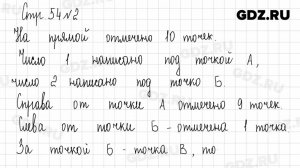 GDZ.RU
Стр 54 №2
На прямой отмечено 10 точек.
Число 1 написано под точкой А,
число 2 написано под точко Б.
Справа от точки А отмечено 9 точек.
Слева от точки Б - отмечена 1 точка
За точкой Б - точка В, то